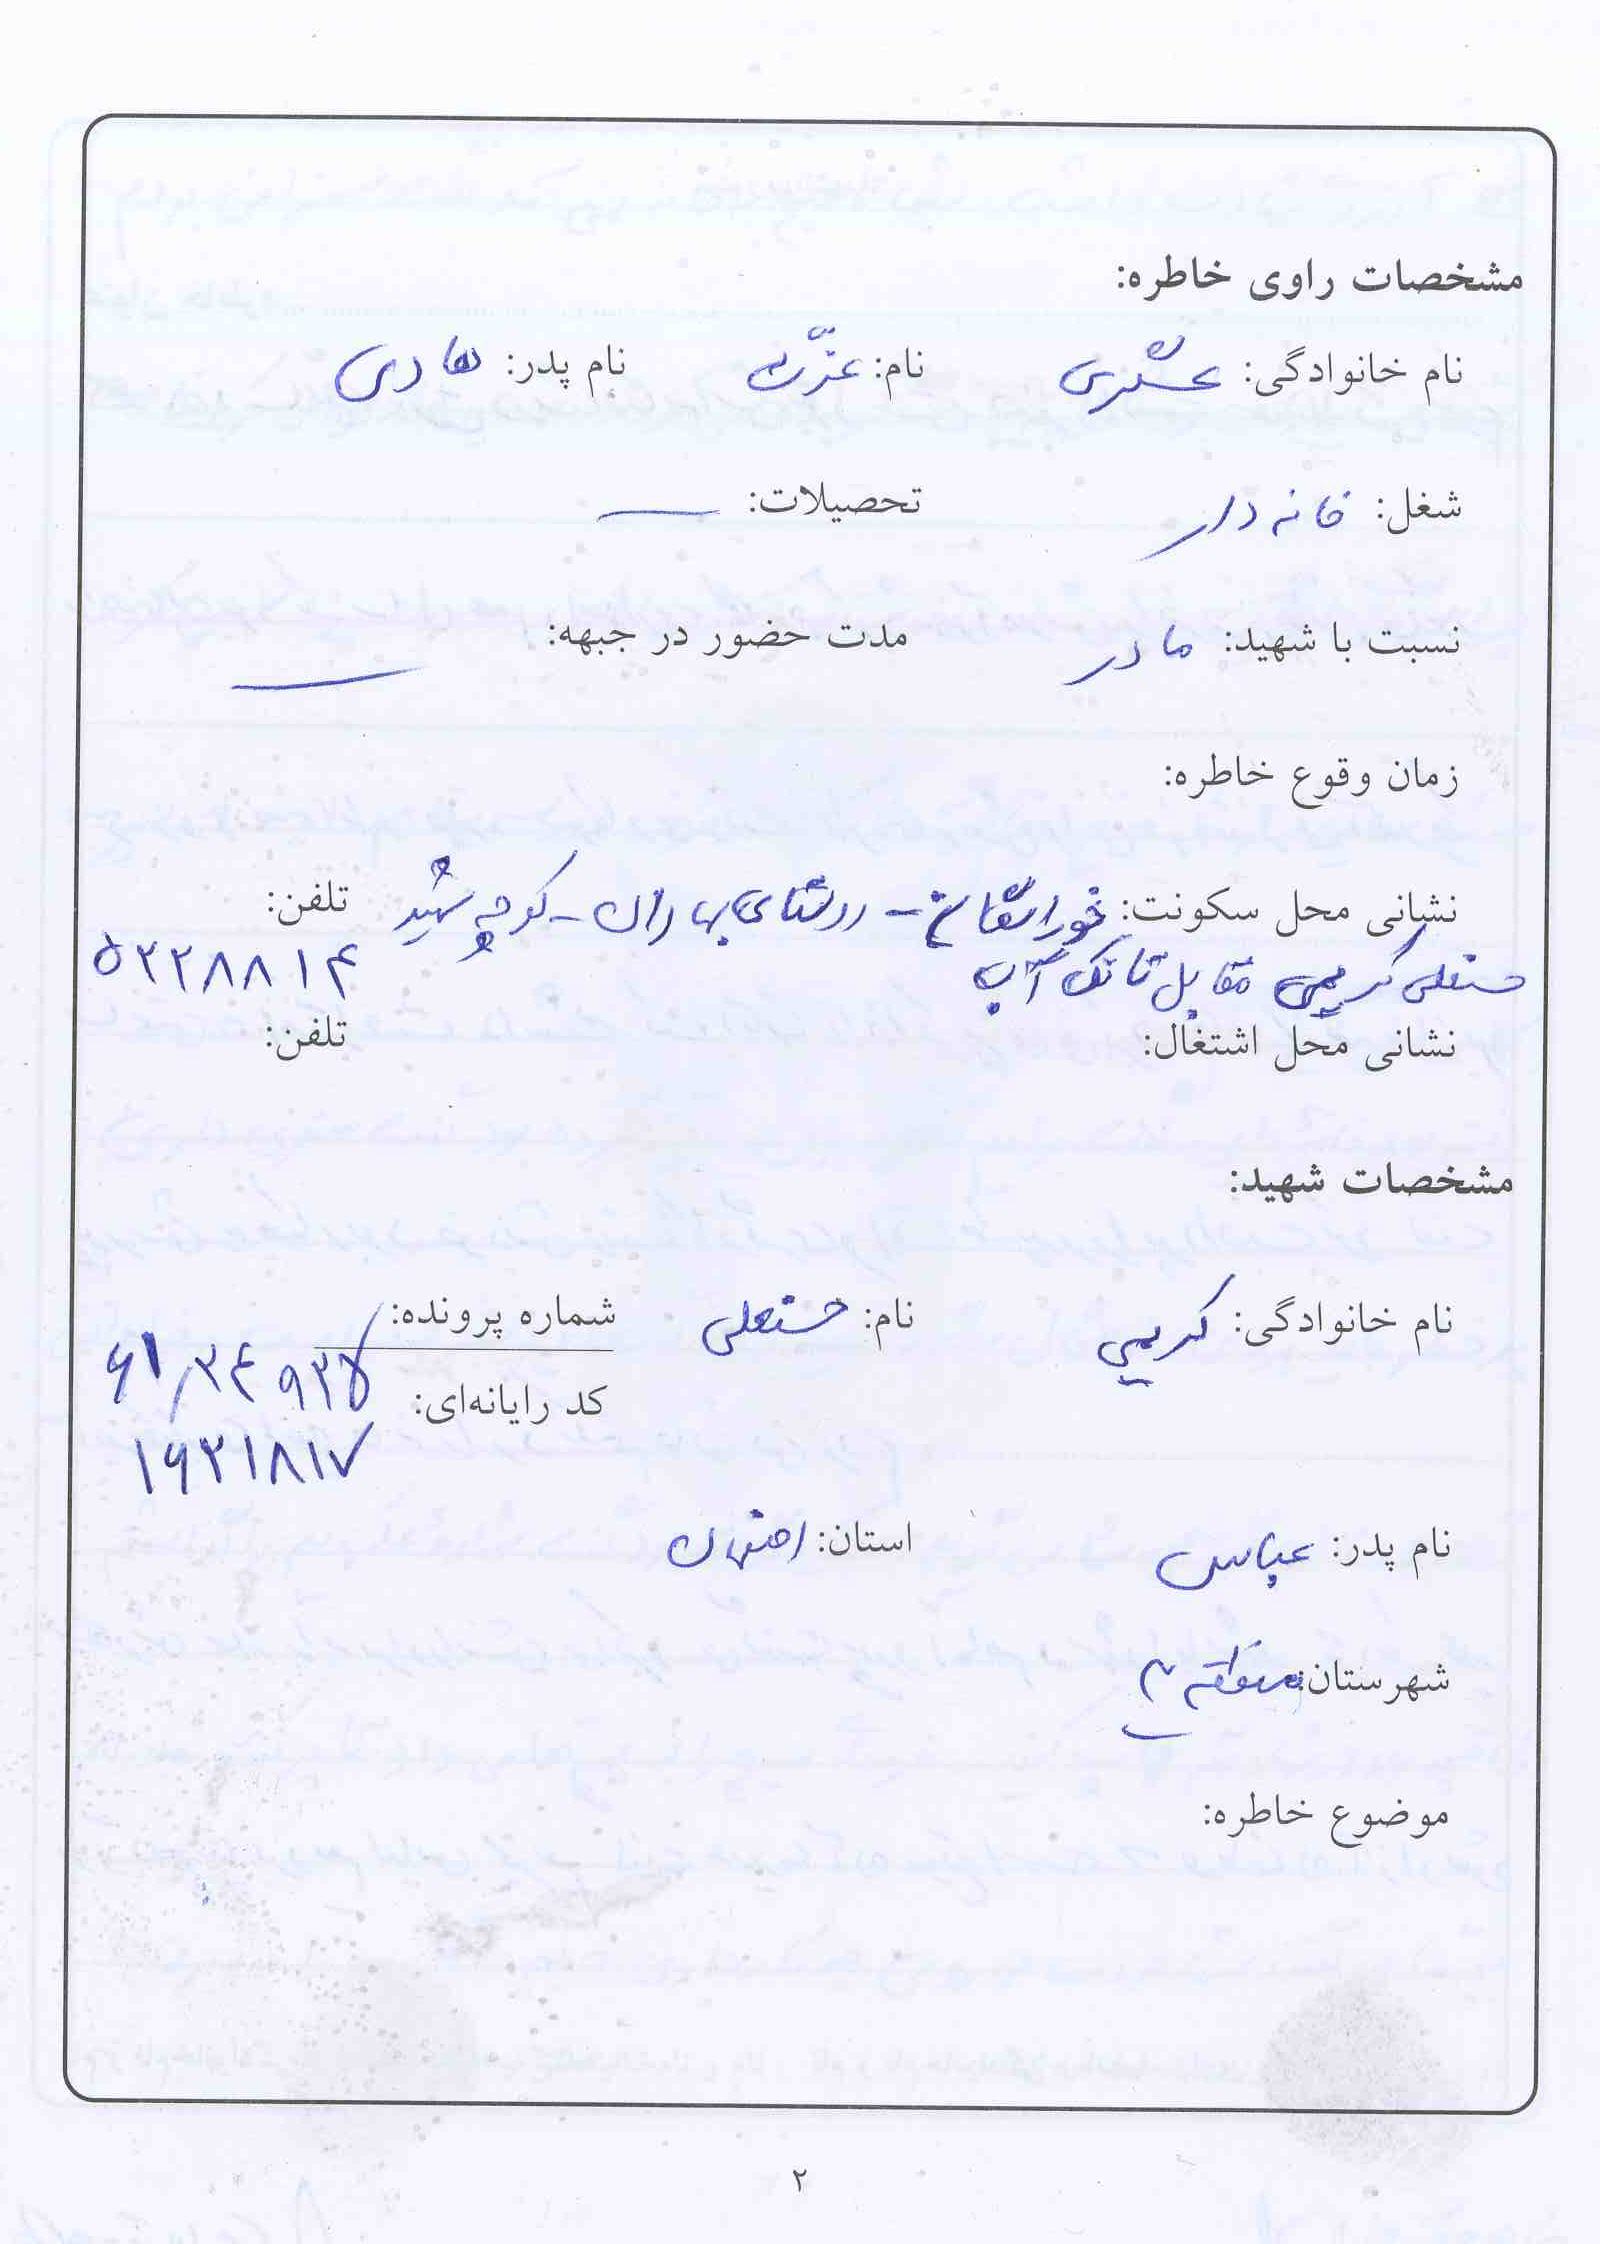 مشخصات راوی خاطره:
نام خانوادگی: عسگری نام: عزّت نام پدر: هادی
شغل: خانه دار تحصیلات: ــ
نسبت با شهید: مادر مدت حضور در جبهه: ــ
زمان وقوع خاطره:
نشانی محل سکونت: خوراسگان - روستای بهاران - کوچه شهید تلفن:
حسنعلی کریمی مقابل تانک آب ۵۲۲۸۸۱۴
نشانی محل اشتغال: تلفن:
مشخصات شهید:
نام خانوادگی: کریمی نام: حسنعلی شماره پرونده:
کد رایانه‌ای:
۱۶۲۱۸۱۷
نام پدر: عباس استان: اصفهان
شهرستان: منطقه
موضوع خاطره:
۲